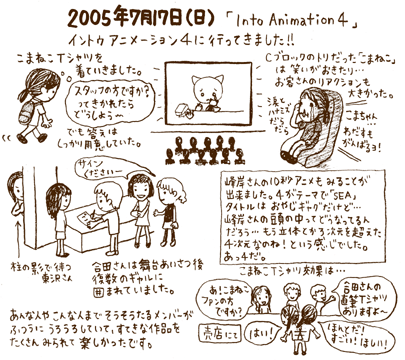 2005年7月17日(日)「Into Animation 4」
イントゥ アニメーション4に行ってきました!!
こまねこTシャツを
着ていきました。
スタッフの方ですか?
ってきかれたら
どうしよう〜
でも答えは
しっかり用意していた。
Cブロックのトリだった「こまねこ」
は 笑いがおきたり…
お客さんのリアクションも
大きかった。
涙と
ハナミズ
だら
だら
こまちゃん…
わだすも
がんばるヨ!
サイン
くださいー
柱の影で待つ
合田さんは舞台あいさつ後
複数のギャルに
囲まれていました。
峰岸さんの10秒アニメも みることが
出来ました。4がテーマで「SEA」
タイトルは おやじギャグだけど…
峰岸さんの頭の中ってどうなってるん
だろう… もう立体とか3次元を超えた
4次元なのね!という感じでした。
あっ4だ。
こまねこTシャツ効果は…
あ!こまねこ
ファンの方
ですか?
合田さんの
直筆Tシャツ
ありますよ〜
売店にて
はい!
ほんとだ!
すごい!ほしい!
あんな人や こんな人まで そうそうたるメンバーが
ふつうに うろうろしていて、すてきな作品を
たくさん みられて 楽しかったです。